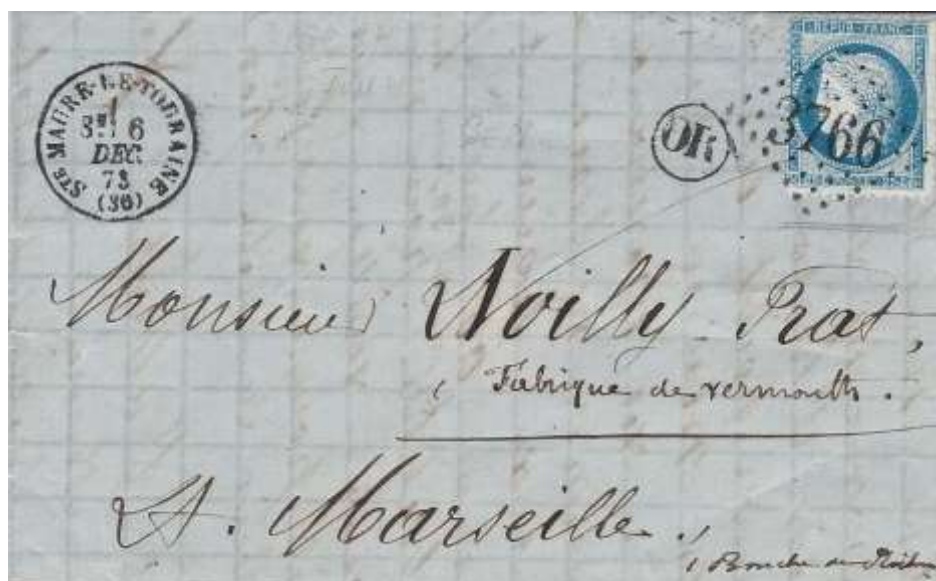 REPUB · FRANC
STE MAURE-DE-TOURAINE
1
3E/ 6
DEC.
73
(36)
OR
3766
Monsieur Noilly Prat,
Fabrique de vermouth.
A. Marseille.
Bouche du Rhône